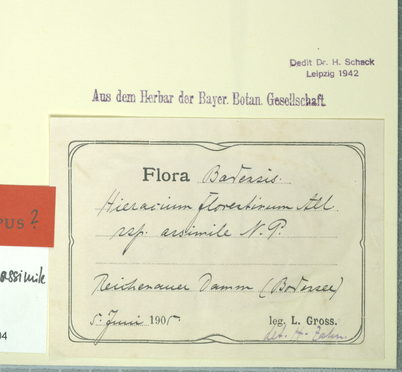 Dedit Dr. H. Schack
Leipzig 1942
Aus dem Herbar der Bayer. Botan. Gesellschaft.
Flora Badensis.
Hieracium florentinum All.
ssp. assimile N. P.
PUS?
assimile
Reichenauer Damm (Bodensee)
5. Juni 1905. leg. L. Gross.
det. Zahn.
04